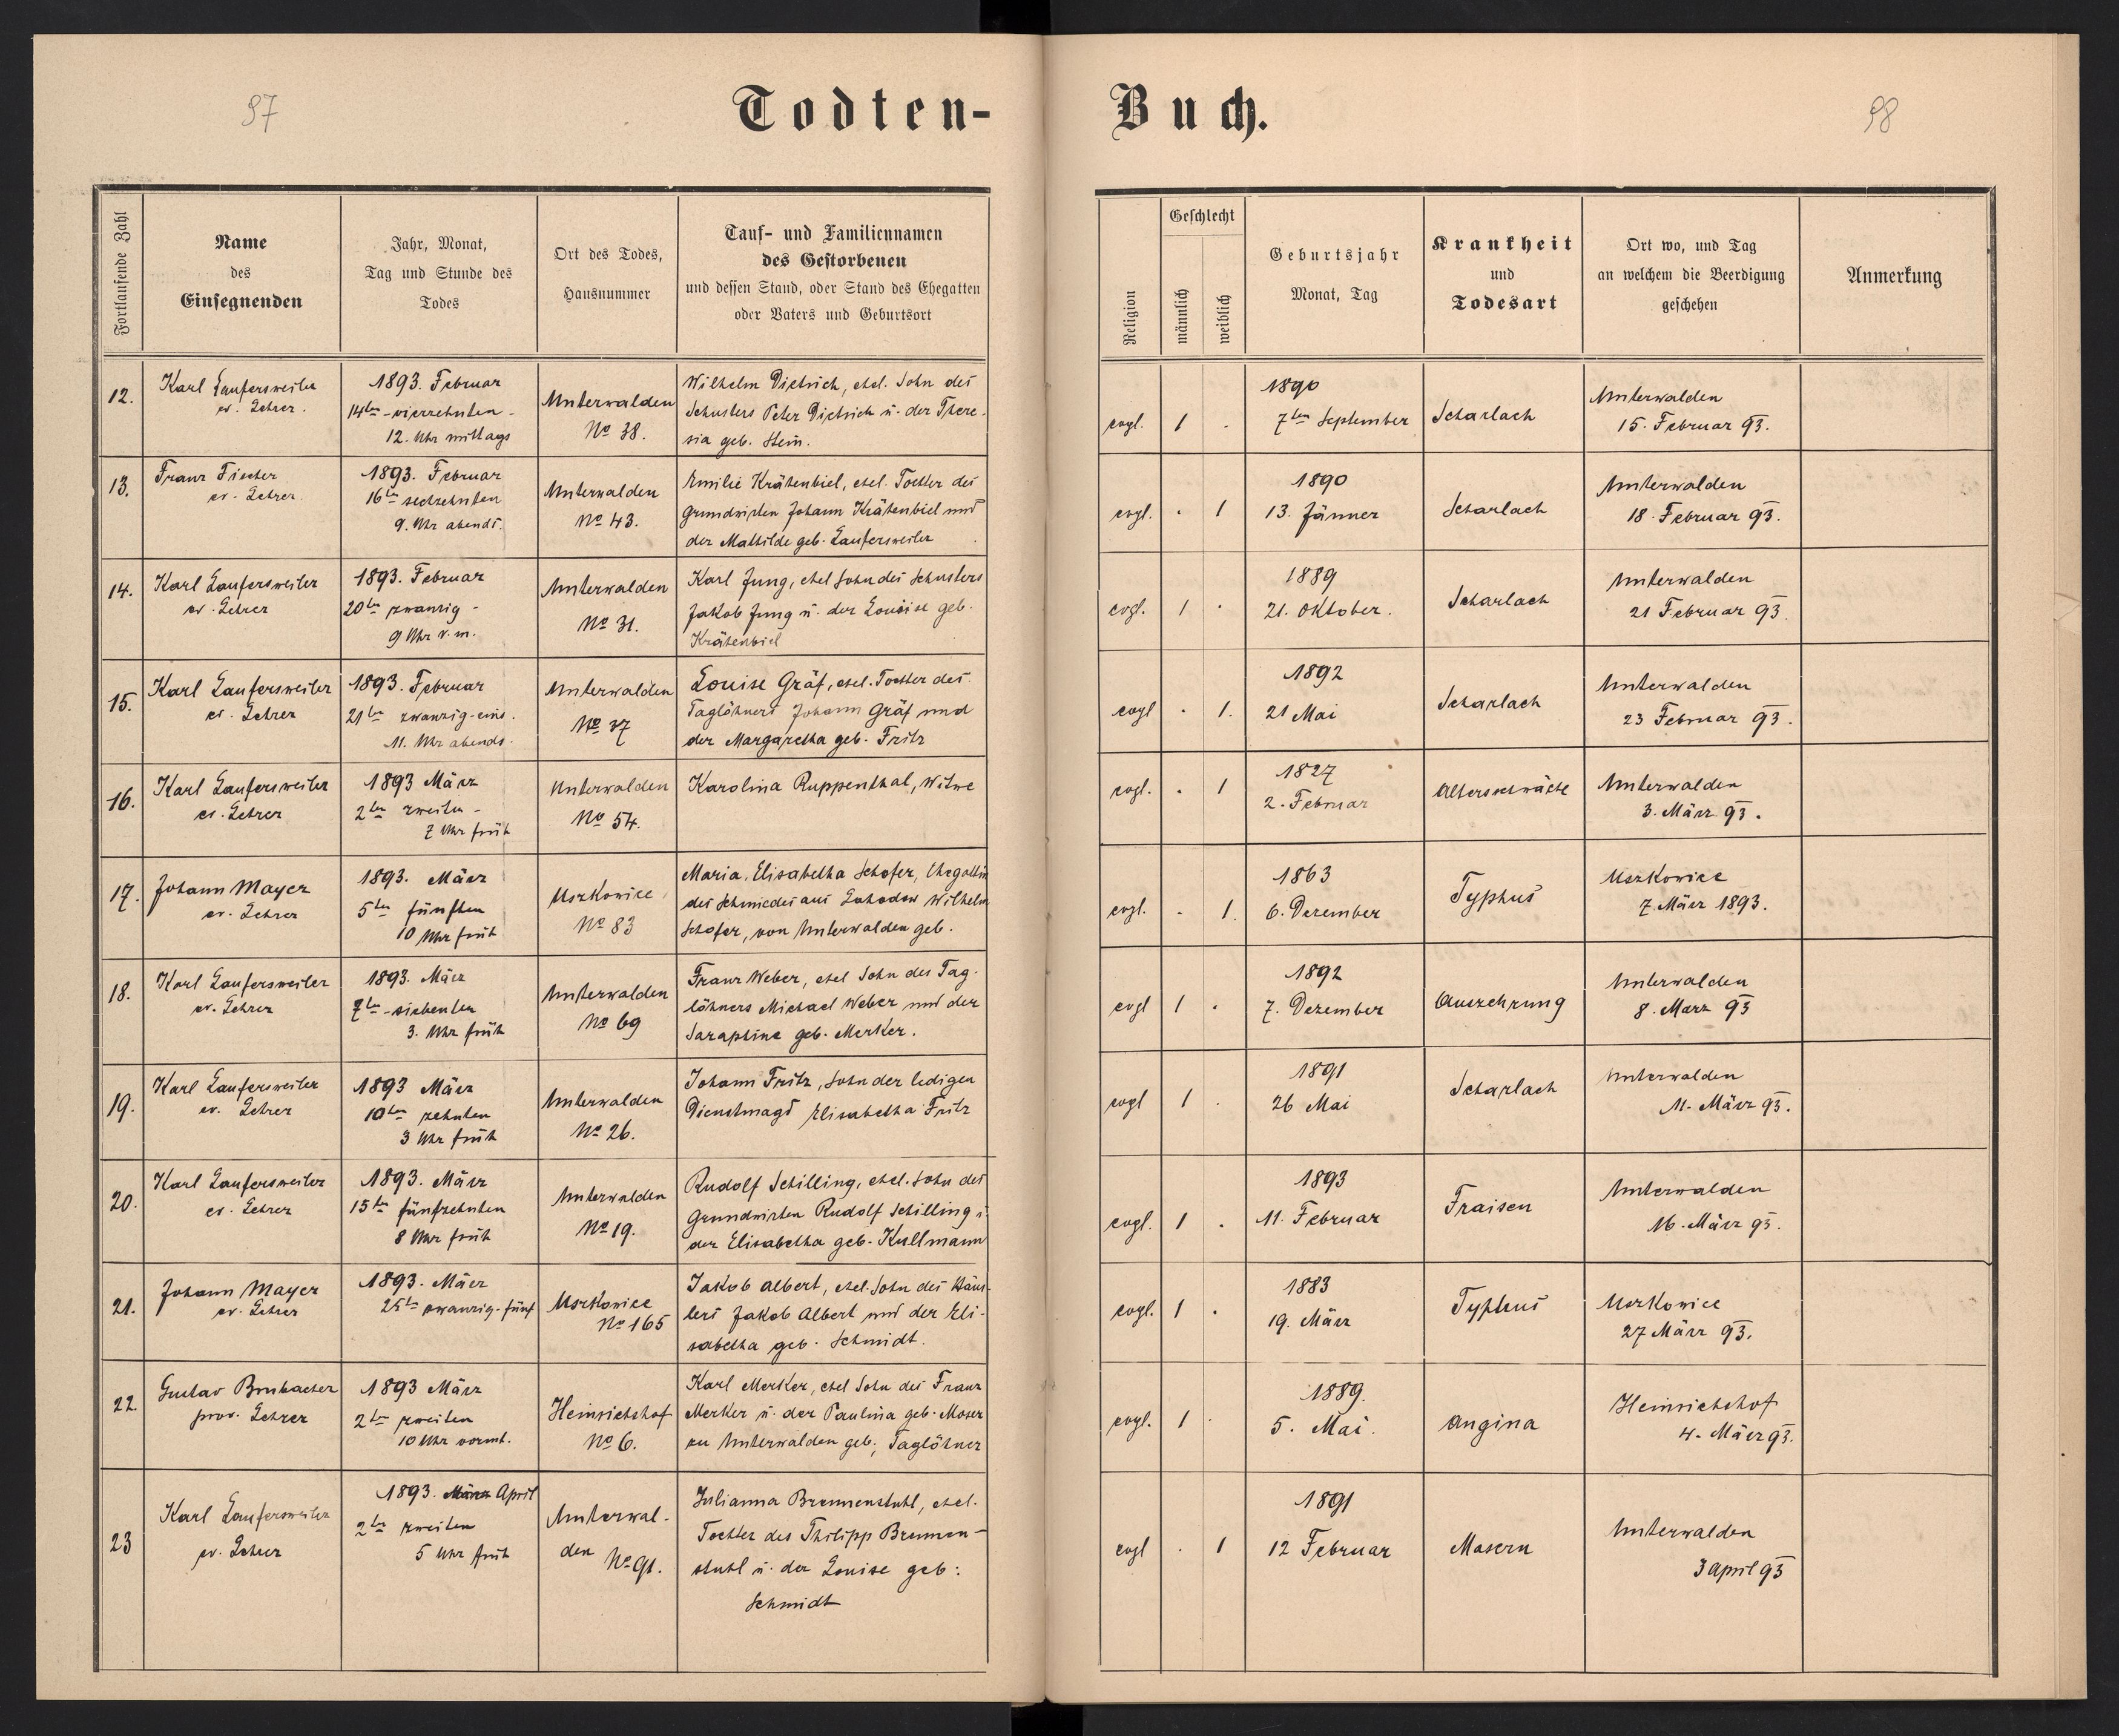 97
Todten-
Buch.
98
Fortlaufende Zahl
Name
des
Einsegnenden
Jahr, Monat,
Tag und Stunde des
Todes
Ort des Todes,
Hausnummer
Tauf- und Familiennamen
des Gestorbenen
und dessen Stand, oder Stand des Ehegatten
oder Vaters und Geburtsort
Religion
Geschlecht
männlich
weiblich
Geburtsjahr
Monat, Tag
Krankheit
und
Todesart
Ort wo, und Tag
an welchem die Beerdigung
geschehen
Anmerkung
12.
Karl Laufersweiler
ev. Lehrer.
1893. Februar
14ten - vierzehnten -
12. Uhr mittags
Unterwalden
No 38.
Wilhelm Dietrich, ehel. Sohn des
Schusters Peter Dietrich u. der There-
sia geb. Stein.
evgl.
1
.
1890
7ten September
Scharlach
Unterwalden
15. Februar 93.
13.
Franz Fischer
ev. Lehrer.
1893. Februar
16ten sechzehnten
9. Uhr abends.
Unterwalden
No 43.
Emilie Krätenbiel, ehel. Tochter des
Grundwirten Johann Krätenbiel und
der Mathilde geb. Laufersweiler
evgl.
.
1
1890
13. Jänner
Scharlach
Unterwalden
18. Februar 93.
14.
Karl Laufersweiler
ev. Lehrer
1893. Februar
20ten zwanzig -
9 Uhr v. m.
Unterwalden
No 31.
Karl Jung, ehel Sohn des Schusters
Jakob Jung u. der Louise geb.
Krätenbiel
evgl.
1
.
1889
21. Oktober.
Scharlach
Unterwalden
21 Februar 93.
15.
Karl Laufersweiler
ev. Lehrer
1893. Februar
21ten zwanzig-eins.
11. Uhr abends.
Unterwalden
No 37
Louise Gräf, ehel. Tochter des
Taglöhners Johann Gräf und
der Margaretha geb. Fritz
evgl
.
1.
1892
21 Mai
Scharlach
Unterwalden
23 Februar 93.
16.
Karl Laufersweiler
ev. Lehrer
1893 März
2ten zweiten -
7 Uhr früh
Unterwalden
No 54.
Karolina Ruppenthal, Witwe
evgl.
.
1
1827
2. Februar
Altersschwäche
Unterwalden
3. März 93.
17.
Johann Mayer
ev. Lehrer
1893. März
5ten fünften
10 Uhr früh
Uszkowice
No 83
Maria Elisabetha Schofer, Ehegattin
des Schmiedes aus Lahodow Wilhelm
Schofer, von Unterwalden geb.
evgl.
.
1.
1863
6. Dezember
Typhus
Uszkowice
7. März 1893.
18.
Karl Laufersweiler
ev. Lehrer
1893. März
7ten - siebenten
3. Uhr früh
Unterwalden
No 69
Franz Weber, ehel Sohn des Tag-
löhners Michael Weber und der
Saraphine geb. Merker.
evgl
1
.
1892
7. Dezember
Auszehrung
Unterwalden
8. März 93
19.
Karl Laufersweiler
ev. Lehrer
1893 März
10ten zehnten
3 Uhr früh
Unterwalden
No 26.
Johann Fritz, Sohn der ledigen
Dienstmagd Elisabetha Fritz
evgl
1
.
1891
26 Mai
Scharlach
Unterwalden
11. März 93.
20.
Karl Laufersweiler
ev. Lehrer
1893. März
15ten fünfzehnten
8 Uhr früh
Unterwalden
No 19.
Rudolf Schilling, ehel. Sohn des
Grundwirten Rudolf Schilling u.
der Elisabetha geb. Kullmann
evgl.
1
.
1893
11. Februar
Fraisen
Unterwalden
16. März 93.
21.
Johann Mayer
ev. Lehrer
1893. März
25ten zwanzig-fünf
Uszkowice
No 165
Jakob Albert, ehel. Sohn des Häus-
lers Jakob Albert und der Eli-
sabetha geb. Schmidt.
evgl.
1
.
1883
19. März
Typhus
Uszkowice
27 März 93.
22.
Gustav Brubacher
prov. Lehrer
1893 März
2ten zweiten
10 Uhr vormt.
Heinrichshof
No 6.
Karl Merker, ehel Sohn des Franz
Merker u. der Paulina geb. Moser
zu Unterwalden geb., Taglöhner
evgl.
1
.
1889.
5. Mai.
Angina
Heinrichshof
4. März 93.
23
Karl Laufersweiler
ev. Lehrer
1893. März April
2ten zweiten
5 Uhr früh
Unterwal-
den No 91.
Julianna Brennenstuhl, ehel.
Tochter des Philipp Brennen-
stuhl u. der Louise geb:
Schmidt
evgl
.
1
1891
12 Februar
Masern
Unterwalden
3 April 93